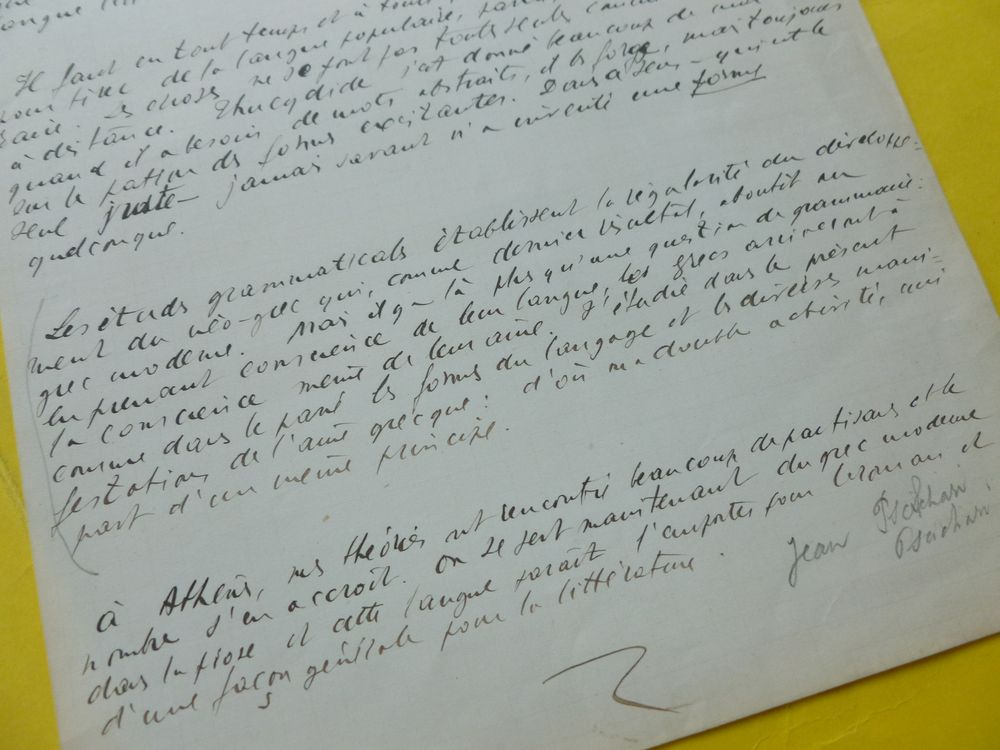 Il faut en tout temps et à tous
de la langue populaire,
choses ne se font pas toutes seules
à distance. Thucydide s'est donné beaucoup de mal
quand il a besoin de mots abstraits, il les forge, mais toujours
sur le patron des formes existantes. Dans ce sens — qui est le
seul juste — jamais savant n'a inventé une forme
quelconque.
Les études grammaticales établissent la régularité du dévelope-
ment du néo-grec qui, comme dernier résultat, aboutit au
grec moderne. Mais il y a là plus qu'une question de grammaire:
en prenant conscience de leur langue, les grecs arriveront à
la conscience même de leur âme. J'étudie dans le présent
comme dans le passé les formes du langage et les diverses mani-
festations de l'âme grecque: d'où ma double activité, qui
part d'un même principe.
à Athènes, mes théories ont rencontré beaucoup de partisans et le
nombre s'en accroît. On se sert maintenant du grec moderne
dans la prose et cette langue paraît l'emporter pour le roman et
d'une façon générale pour la littérature.
Jean Psichari
Psichari